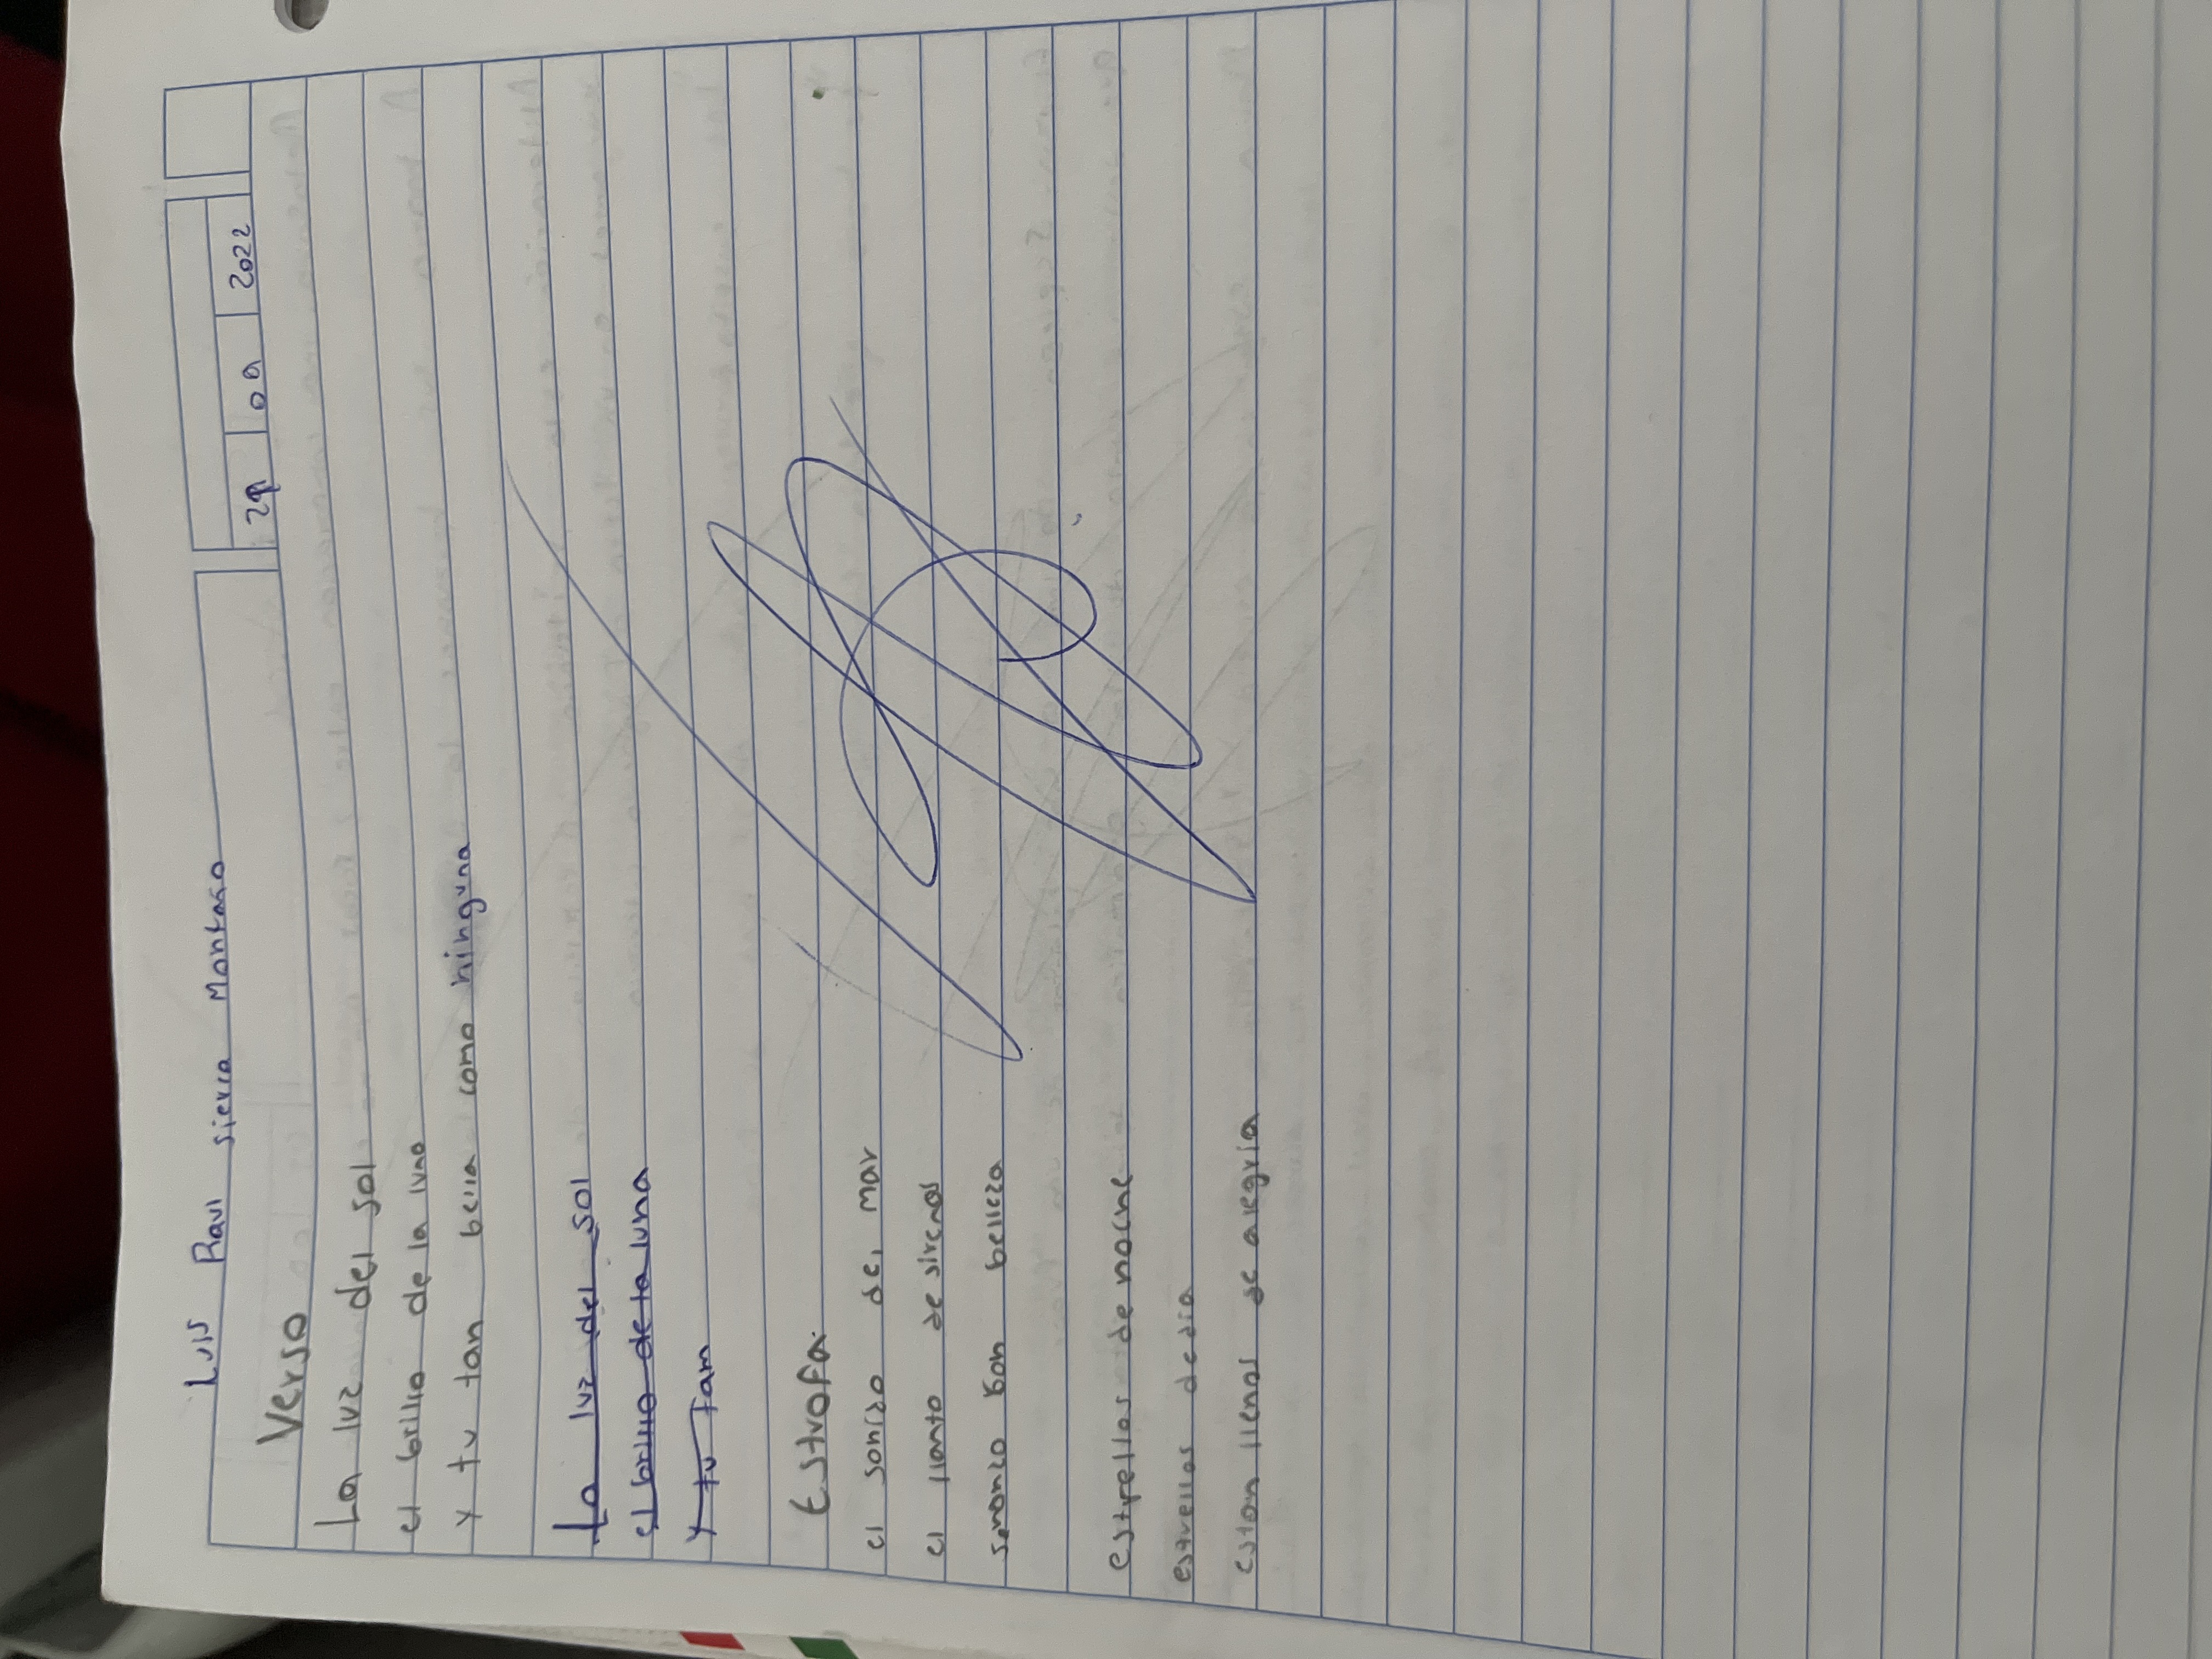 Luis Raul sierra Montaño
09 2022
Verso
La luz del sol
el brillo de la luna
y tu tan bella como ninguna
La luz del sol
el brillo de la luna
y tu tam
Estrofa
el sonido del mar
el llanto de sirenas
con belleza
estrellas de noche
estrellas de dia
estan llenas de alegria